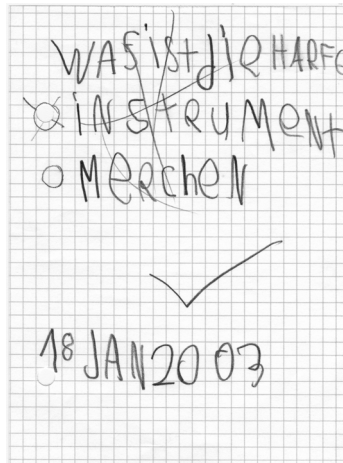 WAS ist die HARFE
iNSTRUMENT
MERCHEN
18 JAN 2003